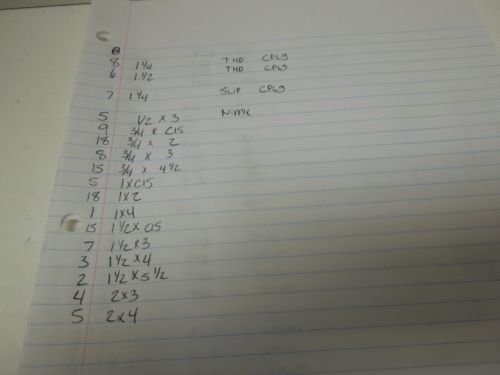 8 1 1/4 THD CPLG
6 1 1/2 THD CPLG
7 1 1/4 SLIP CPLG
5 1/2 x 3 Nipple
9 3/4 x CLS
18 3/4 x 2
8 3/4 x 3
15 3/4 x 4 1/2
5 1 x CLS
18 1 x 2
1 1 x 4
15 1 1/2 x CLS
7 1 1/2 x 3
3 1 1/2 x 4
2 1 1/2 x 5 1/2
4 2 x 3
5 2 x 4